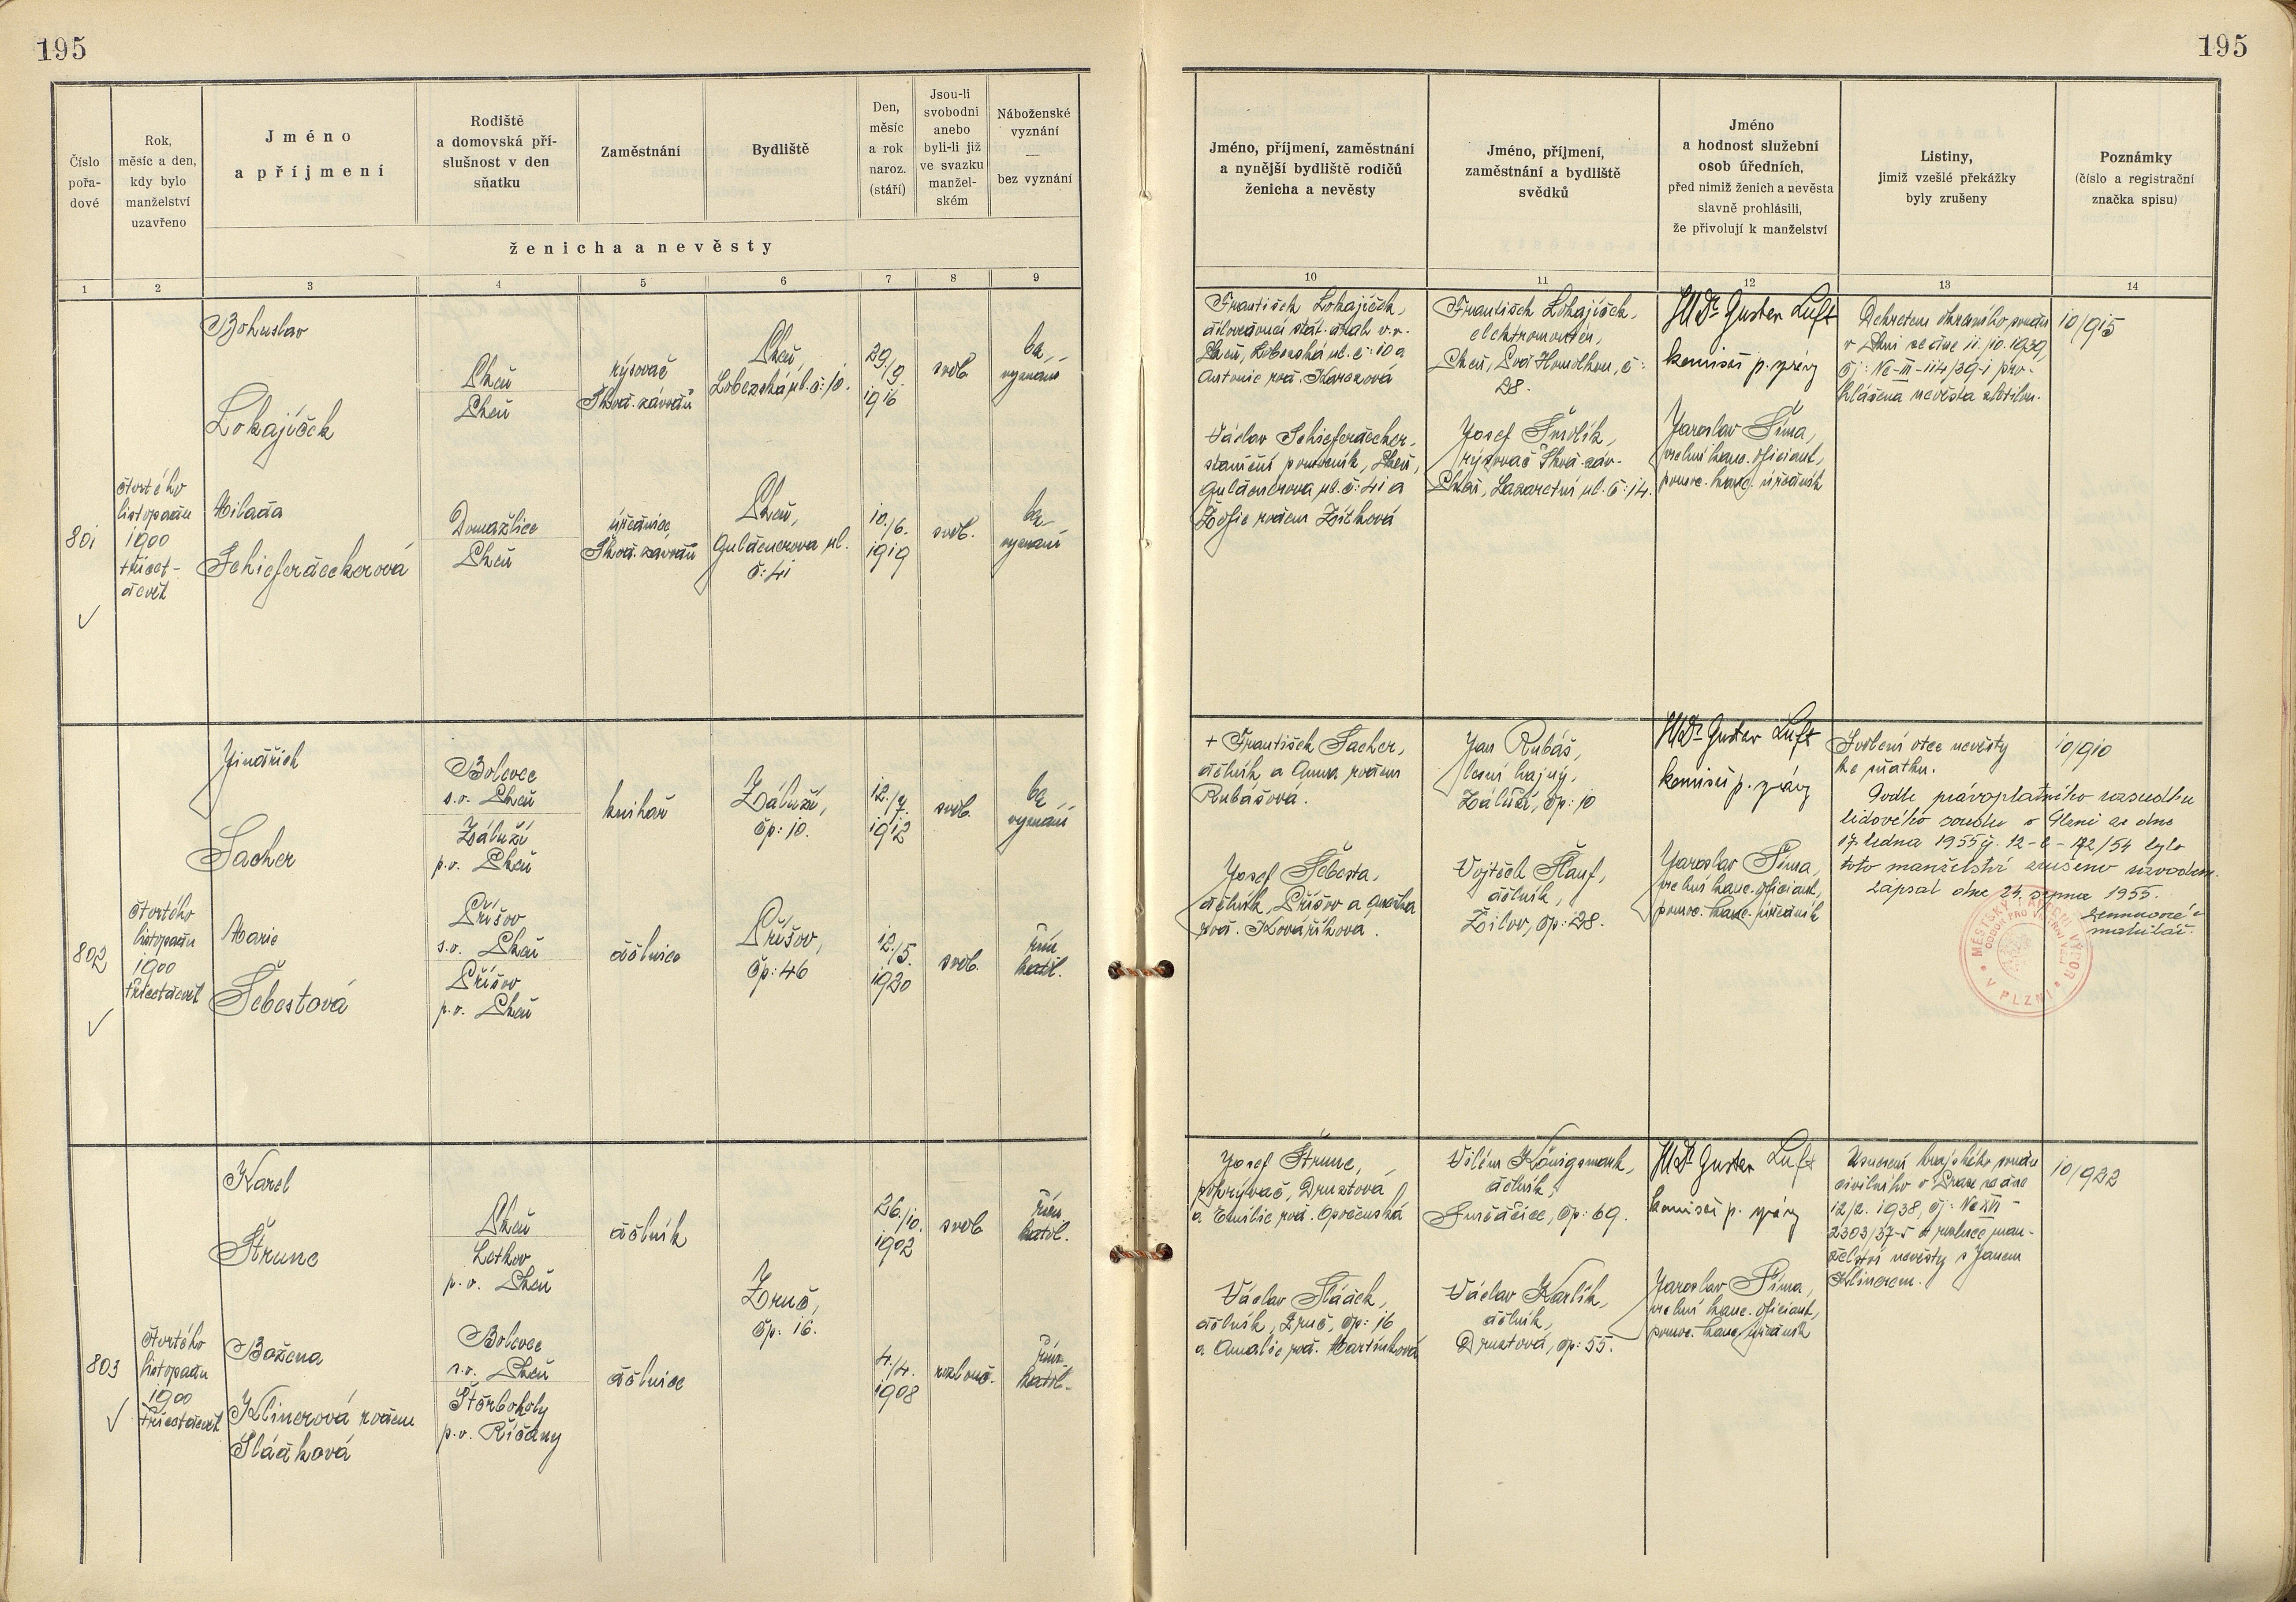 195
195
Číslo
pořa-
dové
Rok,
měsíc a den,
kdy bylo
manželství
uzavřeno
Jméno
a příjmení
Rodiště
a domovská pří-
slušnost v den
sňatku
Zaměstnání
Bydliště
Den,
měsíc
a rok
naroz.
(stáří)
Jsou-li
svobodni
anebo
byli-li již
ve svazku
manžel-
ském
Náboženské
vyznání
—
bez vyznání
ženicha a nevěsty
Jméno, příjmení, zaměstnání
a nynější bydliště rodičů
ženicha a nevěsty
Jméno, příjmení,
zaměstnání a bydliště
svědků
Jméno
a hodnost služební
osob úředních,
před nimiž ženich a nevěsta
slavně prohlásili,
že přivolují k manželství
Listiny,
jimiž vzešlé překážky
byly zrušeny
Poznámky
(číslo a registrační
značka spisu)
1 2 3 4 5 6 7 8 9
10 11 12 13 14
801
čtvrtého
listopadu
1900
třicet-
devět
Bohuslav
Lokajíček
Plzeň
Plzeň
rýsovač
Škod. závodů
Plzeň,
Lobezská ul. č: 10.
29./9.
1916
svob.
bez
vyznání
Milada
Schieferdeckerová
Domažlice
Plzeň
úřednice
Škod. závodů
Plzeň,
Guldenerova ul.
č: 41
10./6.
1919
svob.
bez
vyznání
František Lokajíček,
dílovedoucí stát. drah v.v.
Plzeň, Lobezská ul. č: 10 a
Antonie roz.
Václav Schieferdecker,
staniční pomocník, Plzeň,
Guldenerova ul. č: 41 a
Žofie rozen Zítková
František Lokajíček,
elektromontér,
Plzeň, Pod Homolkou, č:
28.
Josef Smolík,
rýsovač Škod. záv.
Plzeň, Lazaretní ul. č: 14.
JUDr Gustav Luft
komisař p. správy
Jaroslav Šíma,
vrchní kanc. oficiant,
pomoc. kanc. úředník
Dekretem okresního soudu
v Plzni ze dne 11./10. 1939,
čj: Nc-III-114/39-1 pro-
hlášena nevěsta zletilou.
10/915
802
čtvrtého
listopadu
1900
třicetdevět
Jindřich
Sacher
Bolevec
s.o. Plzeň
Záluží
p.o. Plzeň
knihař
Záluží,
čp: 10.
12./7.
1912
svob.
bez
vyznání
Marie
Šebestová
Příšov
s.o. Plzeň
Příšov
p.o. Plzeň
dělnice
Příšov,
čp: 46
12./5.
1920
svob.
řím.
katol.
+ František Sacher,
dělník a Anna rozen
Rubášová.
Josef Šebesta,
dělník, Příšov a Anežka
roz. Kováříková.
Jan Rubáš,
lesní hajný,
Záluží, čp: 10
Vojtěch Šlauf,
dělník,
Žilov, čp: 28.
JUDr Gustav Luft
komisař p. správy
Jaroslav Šíma,
vrchní kanc. oficiant,
pomoc. kanc. úředník
Svolení otce nevěsty
ke sňatku.
Podle právoplatného rozsudku
lidového soudu v Plzni ze dne
17. ledna 1955 čj. 12-C-172/54 bylo
toto manželství zrušeno rozvodem.
Zapsal dne 24. srpna 1955.
matrikář.
10/910
MĚSTSKÝ NÁRODNÍ VÝBOR V PLZNI
803
čtvrtého
listopadu
1900
třicetdevět
Karel
Štrunc
Plzeň
Letkov
p.o. Plzeň
dělník
Zruč,
čp: 16.
26./10.
1902
svob.
řím.
katol.
Božena
Klinerová rozen
Sládková
Bolevec
s.o. Plzeň
Štěrboholy
p.o. Říčany
dělnice
4./4.
1908
rozlouč.
řím.
katol.
Josef Štrunc,
pokrývač, Druztová
a Emilie roz. Opočenská
Václav Sládek,
dělník, Zruč, čp: 16
a Amalie roz. Martínková
Vilém Königsmark,
dělník,
čp: 69.
Václav Karlík,
dělník,
Druztová, čp: 55.
JUDr Gustav Luft
komisař p. správy
Jaroslav Šíma,
vrchní kanc. oficiant,
pomoc. kanc. úředník
Usnesení krajského soudu
civilního v Praze ze dne
12/2. 1938, čj: Nc XVI-
2303/37-5 o rozluce man-
želství nevěsty s Janem
Klinerem.
10/922